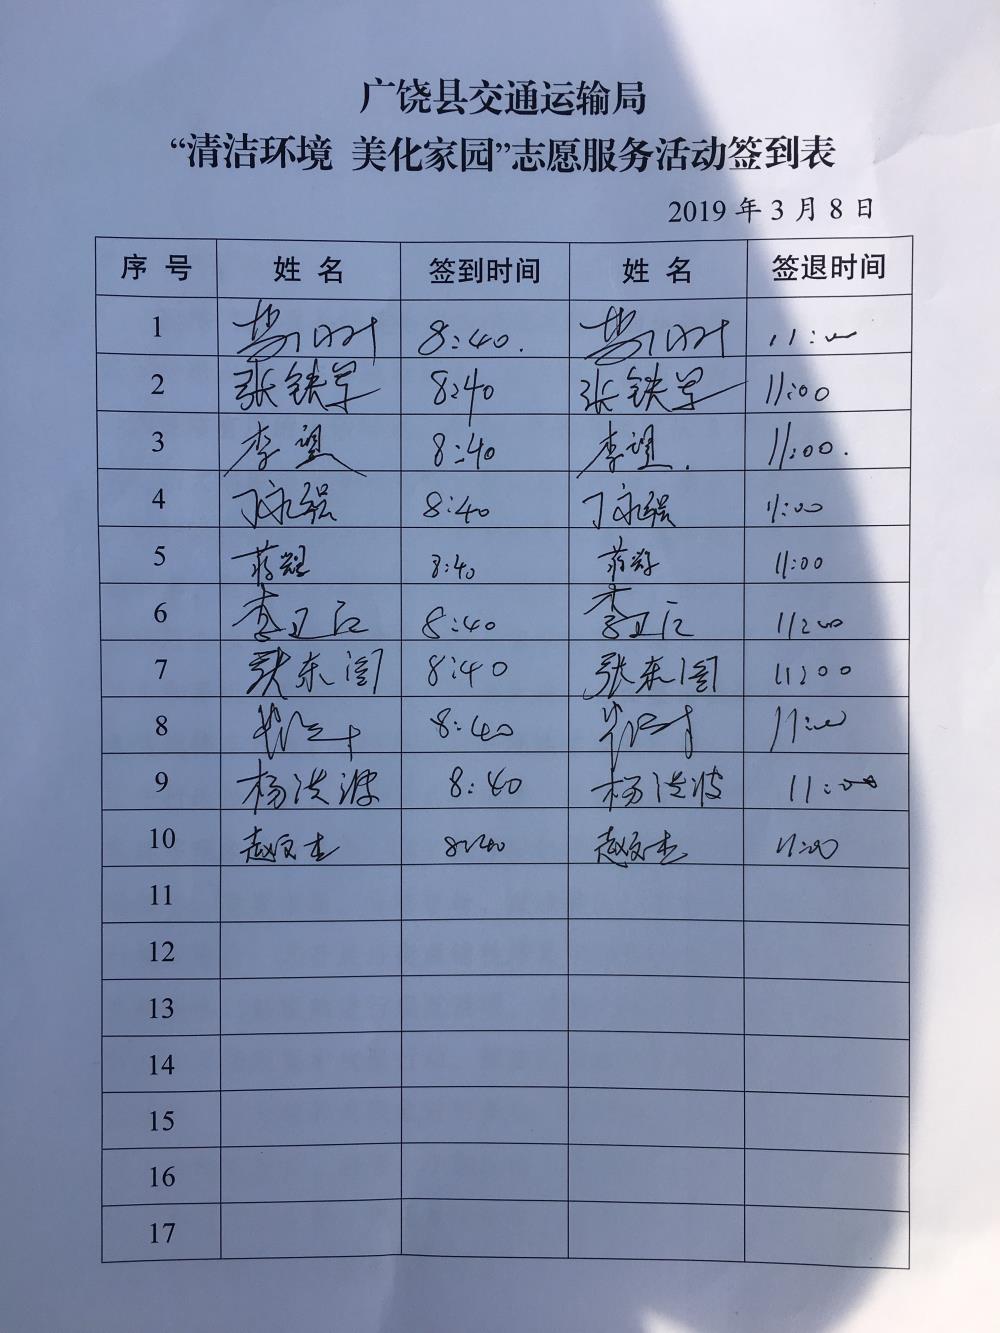 广饶县交通运输局
“清洁环境 美化家园”志愿服务活动签到表
2019 年 3 月 8 日
序 号 姓 名 签到时间 姓 名 签退时间
1 8:40. 11:00
2 张铁军 8:40 张铁军 11:00
3 李望 8:40 李望. 11:00.
4 丁永强 8:40 丁永强 11:00
5 8:40 11:00
6 李卫江 8:40 李卫江 11:00
7 张东阁 8:40 张东阁 11:00
8 8:40 11:00
9 杨洪波 8:40 杨洪波 11:00
10 赵文杰 8:40 赵文杰 11:00
11
12
13
14
15
16
17